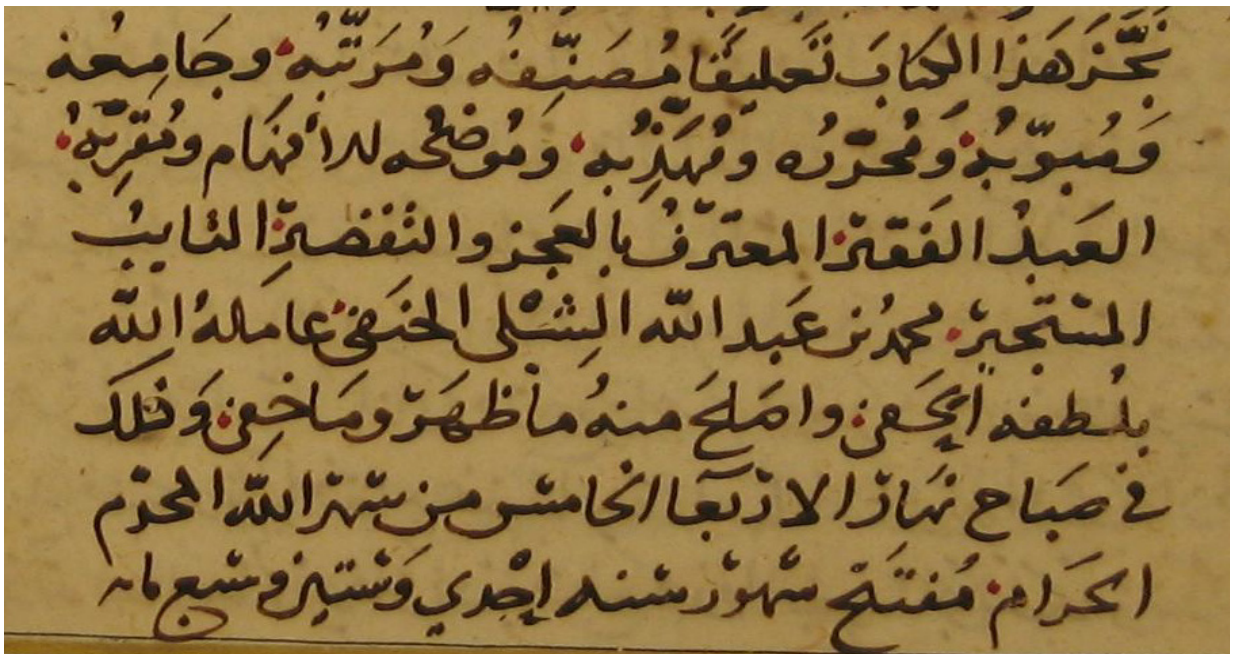 نَجَّزَ هَذَا الكِتابَ تَعليقًا مُصَنِّفُه وَمُرَتِّبُه وجَامِعُه
وَمُبوّبُه ومُحَرّرُه ومُهَذِّبُه ومُوضحُه للأفهَام ومُقرّبُه
العَبدُ الفَقيرُ المعترفُ بالعَجز والتقصيرِ التايبُ
المستجيرُ محمدُ بن عَبد الله الشِبْلى الحنَفىُ عامَلهُ الله
بلُطفه الخَفى واصْلحَ منهُ ماظهَرَ ومَاخفِى وَذلكَ
فى صَبَاح نهَار الاربَعا الخامس من شهر الله المحرّم
الحَرام مُفتَتح شهور سَنه إحْدي وَستين وسبع مايه